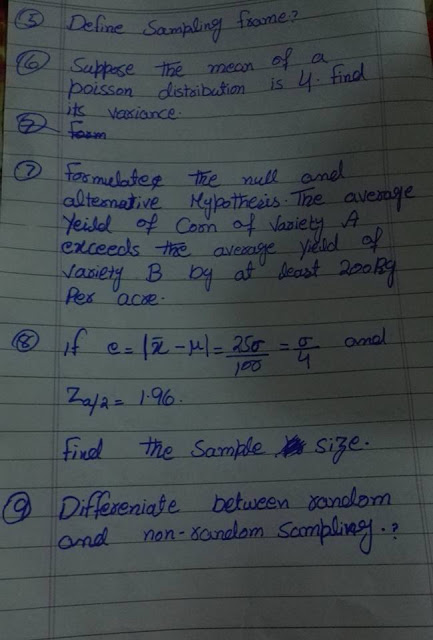 ⑤ Define Sampling frame.?
⑥ Suppose the mean of a
poisson distribution is 4. find
its variance.
⑦ Form
⑦ Formulate the null and
alternative Hypothesis. The average
Yeild of Corn of Variety A
exceeds the average yield of
Variety B by at least 200kg
Per acre.
⑧ if e = |x̄ - μ| = 25σ/100 = σ/4 and
Zα/2 = 1.96.
find the Sample size.
⑨ Differeniate between random
and non-random sampling.?